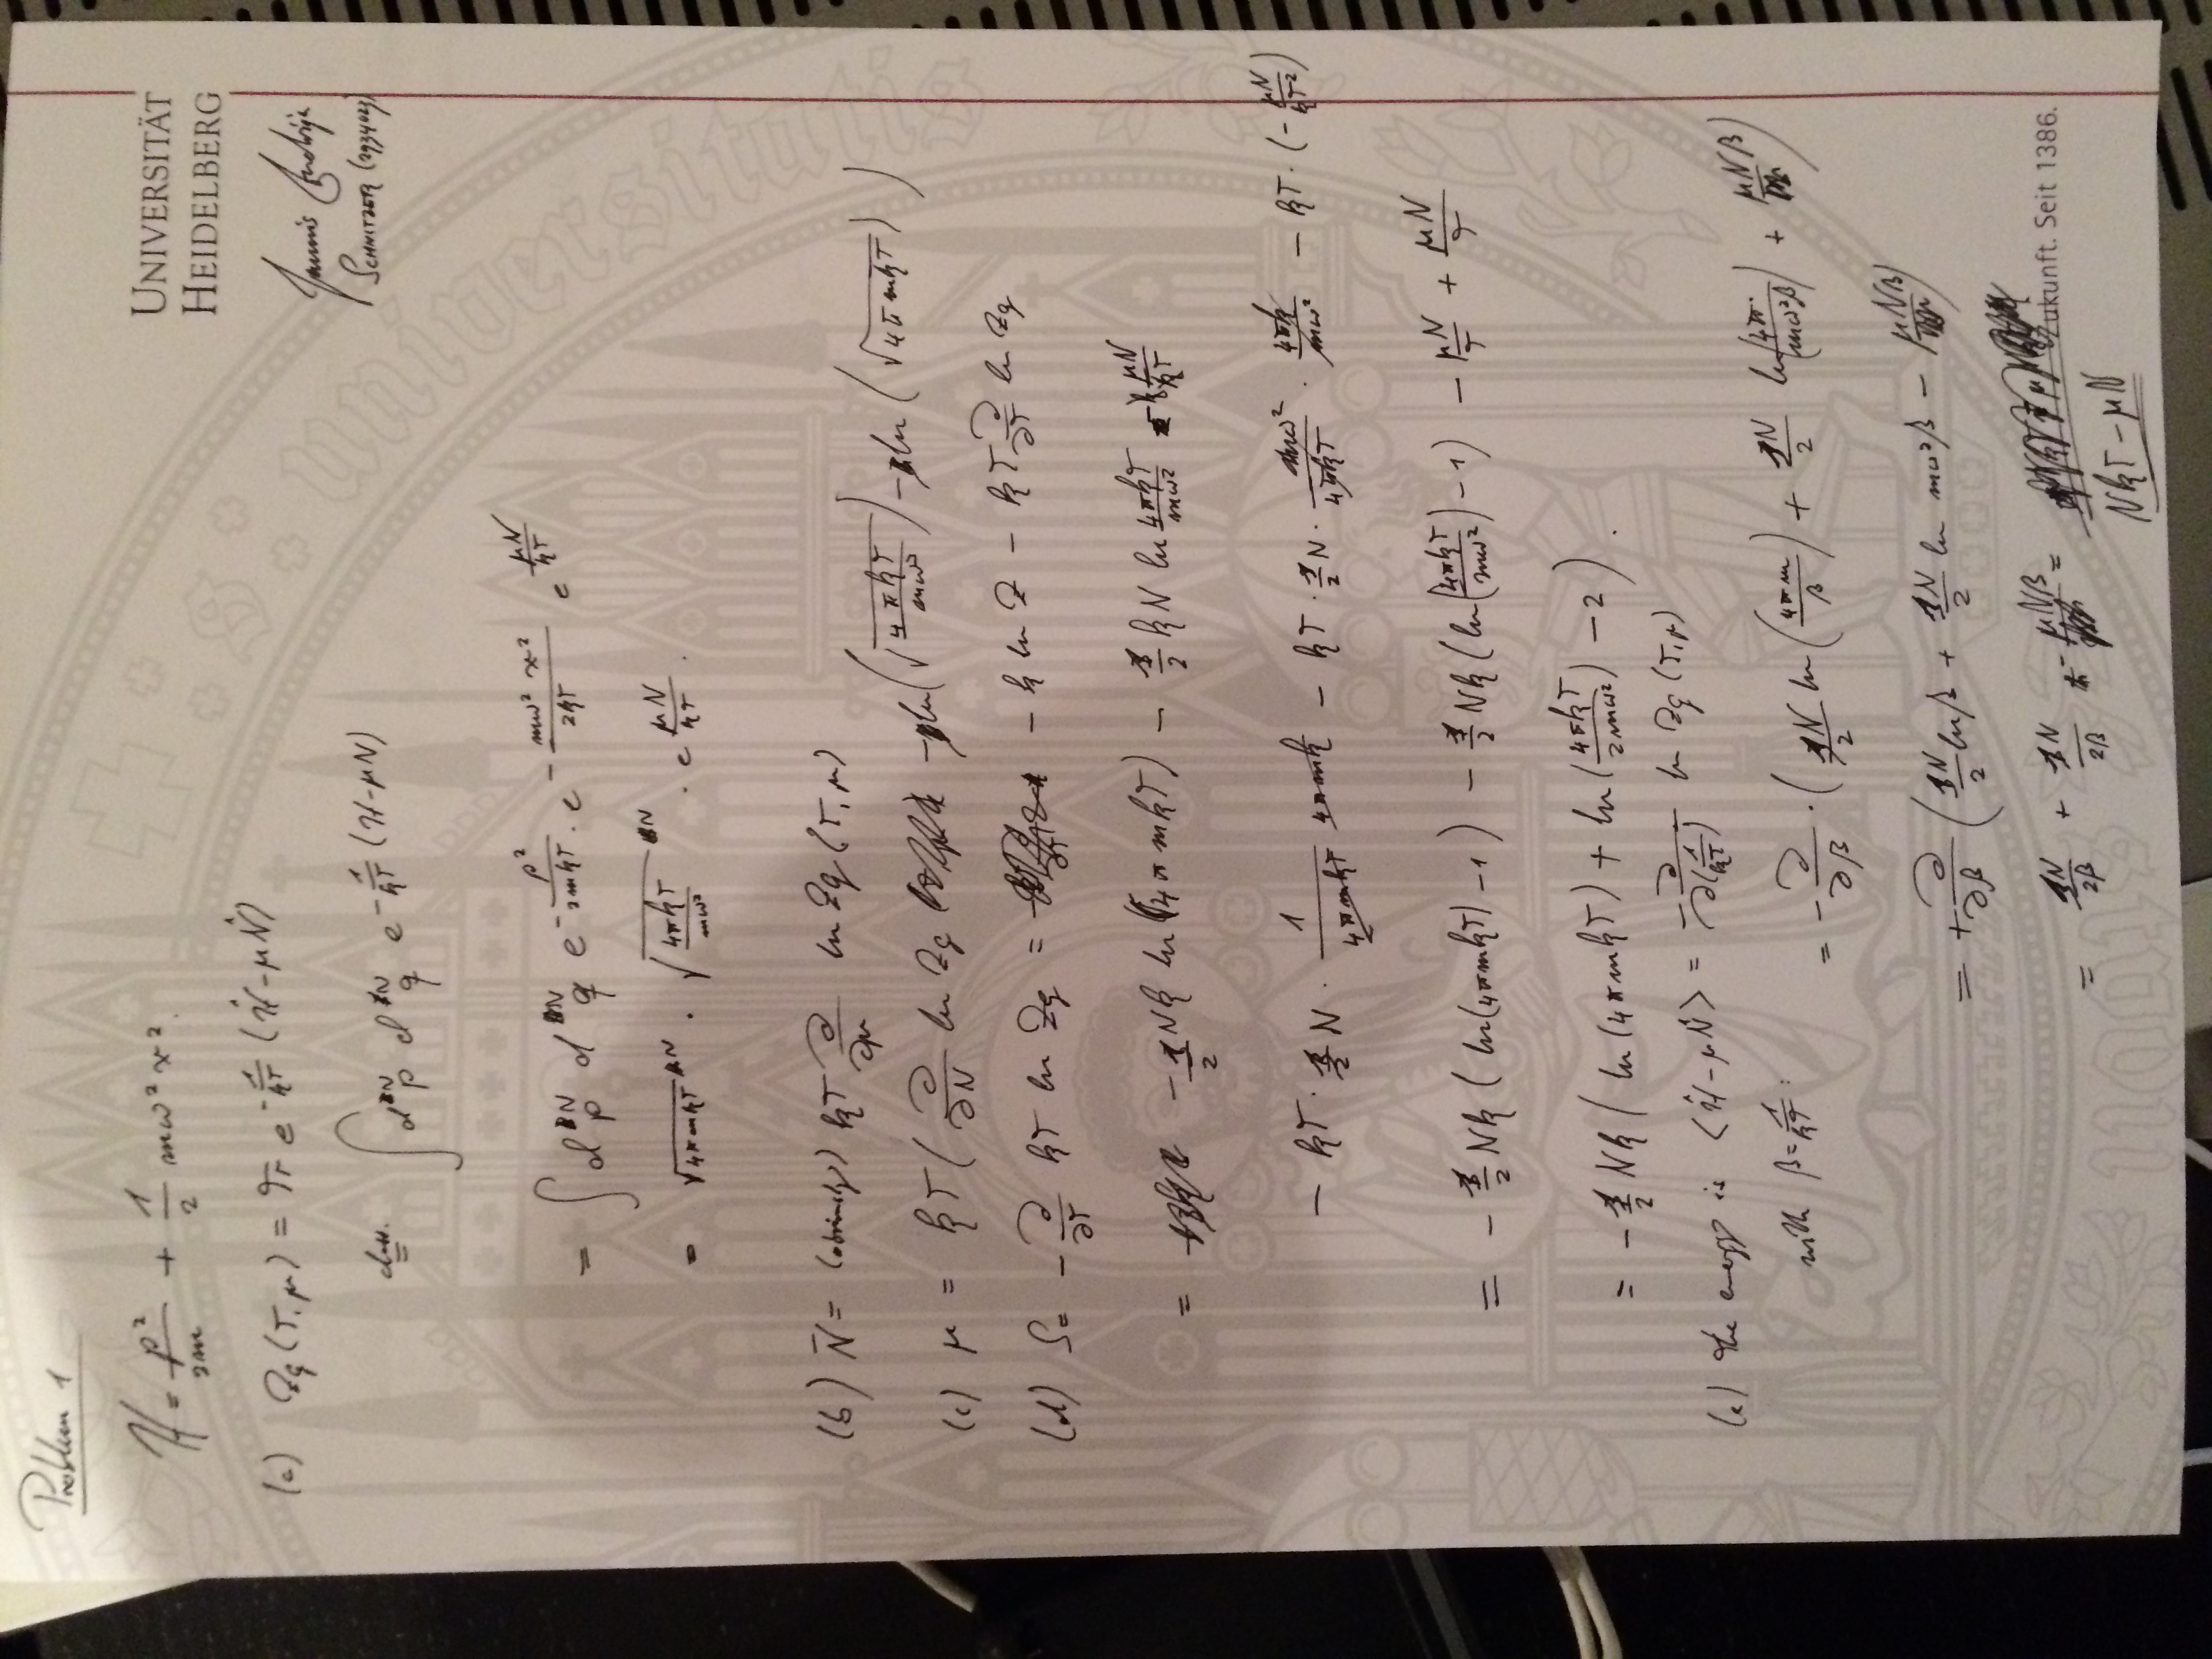 UNIVERSITÄT
HEIDELBERG
Problem 1
SCHNITZER
H = p²/2m + 1/2 mω²x².
(a) Zg(T,μ) = Tr e^{-1/kT (H-μN)}
class.= ∫ d^N p d^N q e^{-1/kT (H-μN)}
= ∫ d^N p d^N q e^{-p²/2mkT} · e^{-mω²x²/2kT} e^{μN/kT}
= √(4πmkT)^N · √(4πkT/mω²)^N · e^{μN/kT}.
(b) N̄ = (obviously) kT ∂/∂μ ln Zg(T,μ)
(c) μ = kT (∂/∂N ln Zg - ln(√(4πkT/mω²)) - ln(√(4πmkT)))
(d) S = -∂/∂T kT ln Zg = - k ln Z - kT ∂/∂T ln Zg
= - 1/2 Nk ln(4πmkT) - 1/2 kN ln 4πkT/mω² - μN/T
- kT · 1/2 N · 1/4πmkT 4πmk - kT · 1/2 N · mω²/4πkT · 4πk/mω² - kT · (-μN/kT²)
= - 1/2 Nk (ln(4πmkT) - 1) - 1/2 Nk (ln(4πkT/mω²) - 1) - μN/T + μN/T
= - 1/2 Nk (ln(4πmkT) + ln(4πkT/2mω²) - 2).
(e) The energy is <H-μN> = -∂/∂(1/kT) ln Zg(T,μ)
with β = 1/kT: = -∂/∂β · (1N/2 ln(4πm/β) + 1N/2 ln(4π/mω²β) + μNβ)
= +∂/∂β (1N/2 ln β + 1N/2 ln mω²β - μNβ)
= 1N/2β + 1N/2β - μNβ =
NkT - μN
Zukunft. Seit 1386.